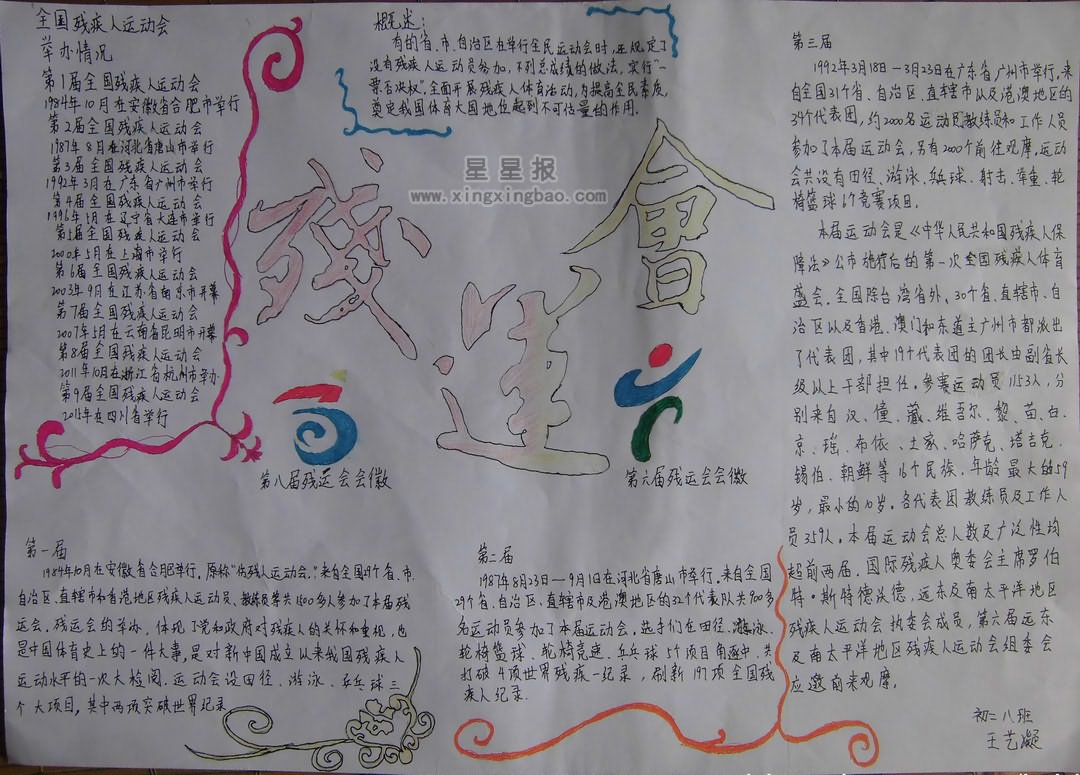 全国残疾人运动会
举办情况
第1届全国残疾人运动会
1984年10月在安徽省合肥市举行
第2届全国残疾人运动会
1987年8月在河北省唐山市举行
第3届全国残疾人运动会
1992年3月在广东省广州市举行
第4届全国残疾人运动会
1996年5月在辽宁省大连市举行
第5届全国残疾人运动会
2000年5月在上海市举行
第6届全国残疾人运动会
2003年9月在江苏省南京市开幕
第7届全国残疾人运动会
2007年5月在云南省昆明市开幕
第8届全国残疾人运动会
2011年10月在浙江省杭州市举办
第9届全国残疾人运动会
2015年在四川省举行
概述：
有的省、市、自治区在举行全民运动会时，还规定了
没有残疾人运动员参加，不列总成绩的做法，实行“一
票否决权”。全面开展残疾人体育活动，为提高全民素质，
奠定我国体育大国地位起到不可估量的作用。
星星报
www.xingxingbao.com
殘運會
第八届残运会会徽
第六届残运会会徽
第一届
1984年10月在安徽省合肥举行，原称“伤残人运动会。”来自全国29个省、市、
自治区、直辖市和香港地区残疾人运动员、教练员等共1500多人参加了本届残
运会。残运会的举办，体现了党和政府对残疾人的关怀和重视，也
是中国体育史上的一件大事，是对新中国成立以来我国残疾人
运动水平的一次大检阅。运动会设田径、游泳、乒乓球三
个大项目，其中两项突破世界纪录
第二届
1987年8月23日—9月1日在河北省唐山市举行，来自全国
29个省、自治区、直辖市及港澳地区的32个代表队共900多
名运动员参加了本届运动会。选手们在田径、游泳、
轮椅篮球、轮椅竞速、乒乓球5个项目角逐中，共
打破4项世界残疾一纪录，刷新197项全国残
疾人纪录.
第三届
1992年3月18日—3月23日在广东省广州市举行，来
自全国31个省、自治区、直辖市以及港澳地区的
34个代表团，约2000名运动员教练员和工作人员
参加了本届运动会，另有2000个前往观摩。运动
会共设有田径、游泳、乒球、射击、举重、轮
椅篮球6个竞赛项目。
本届运动会是《中华人民共和国残疾人保
障法》公布施行后的第一次全国残疾人体育
盛会。全国除台湾省外，30个省、直辖市、自
治区以及香港、澳门和东道主广州市都派出
了代表团，其中19个代表团的团长由副省长
级以上干部担任。参赛运动员1153人，分
别来自汉、僮、藏、维吾尔、黎、苗、白、
京、瑶、布依、土家、哈萨克、塔吉克、
锡伯、朝鲜等16个民族，年龄最大的59
岁，最小的10岁。各代表团教练员及工作人
员359人。本届运动会总人数及广泛性均
超前两届。国际残疾人奥委会主席罗伯
特·斯特德沃德，远东及南太平洋地区
残疾人运动会执委会成员，第六届远东
及南太平洋地区残疾人运动会组委会
应邀前来观摩。
初二八班
王艺凝